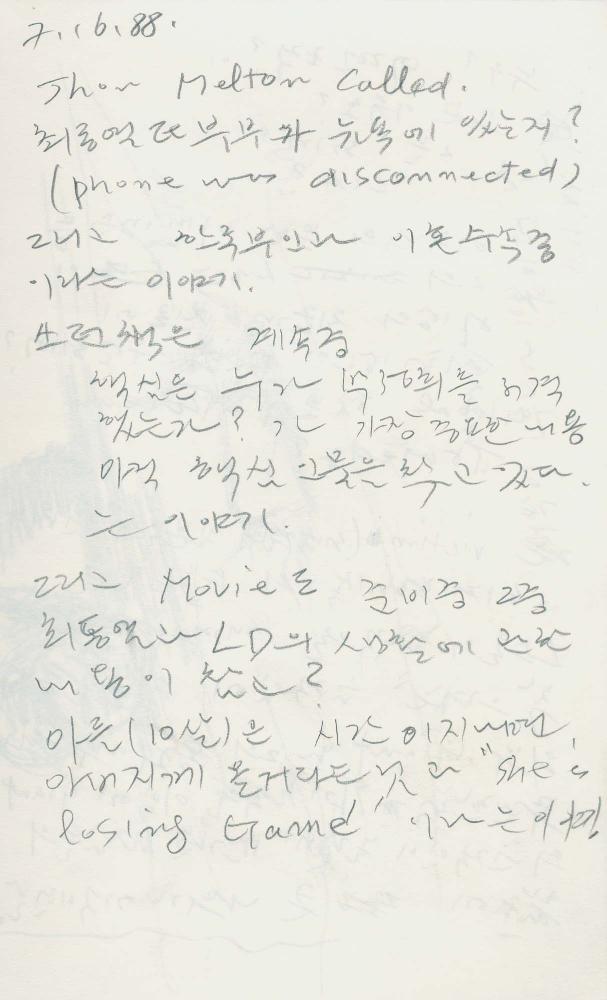 7.16.88.
Jhon Melton Called.
최동열 또 부부가 뉴욕에 있는지?
(phone was disconnected)
그리고 한국부인과 이혼수속중
이라는 이야기.
쓰던 책은 계속중
핵심은 누가 박정희를 저격
했는가? 가 가장 중요한 내용
이적 핵심 인물을 찾고 있다.
는 이야기.
그리고 Movie도 준비중 그중
최동열과 LD의 생활에 관한
내용이 참고?
아들(10살)은 시간이 지나면,
아버지께 올거라는 것과 "she is
losing Game" 이라는 이야기.